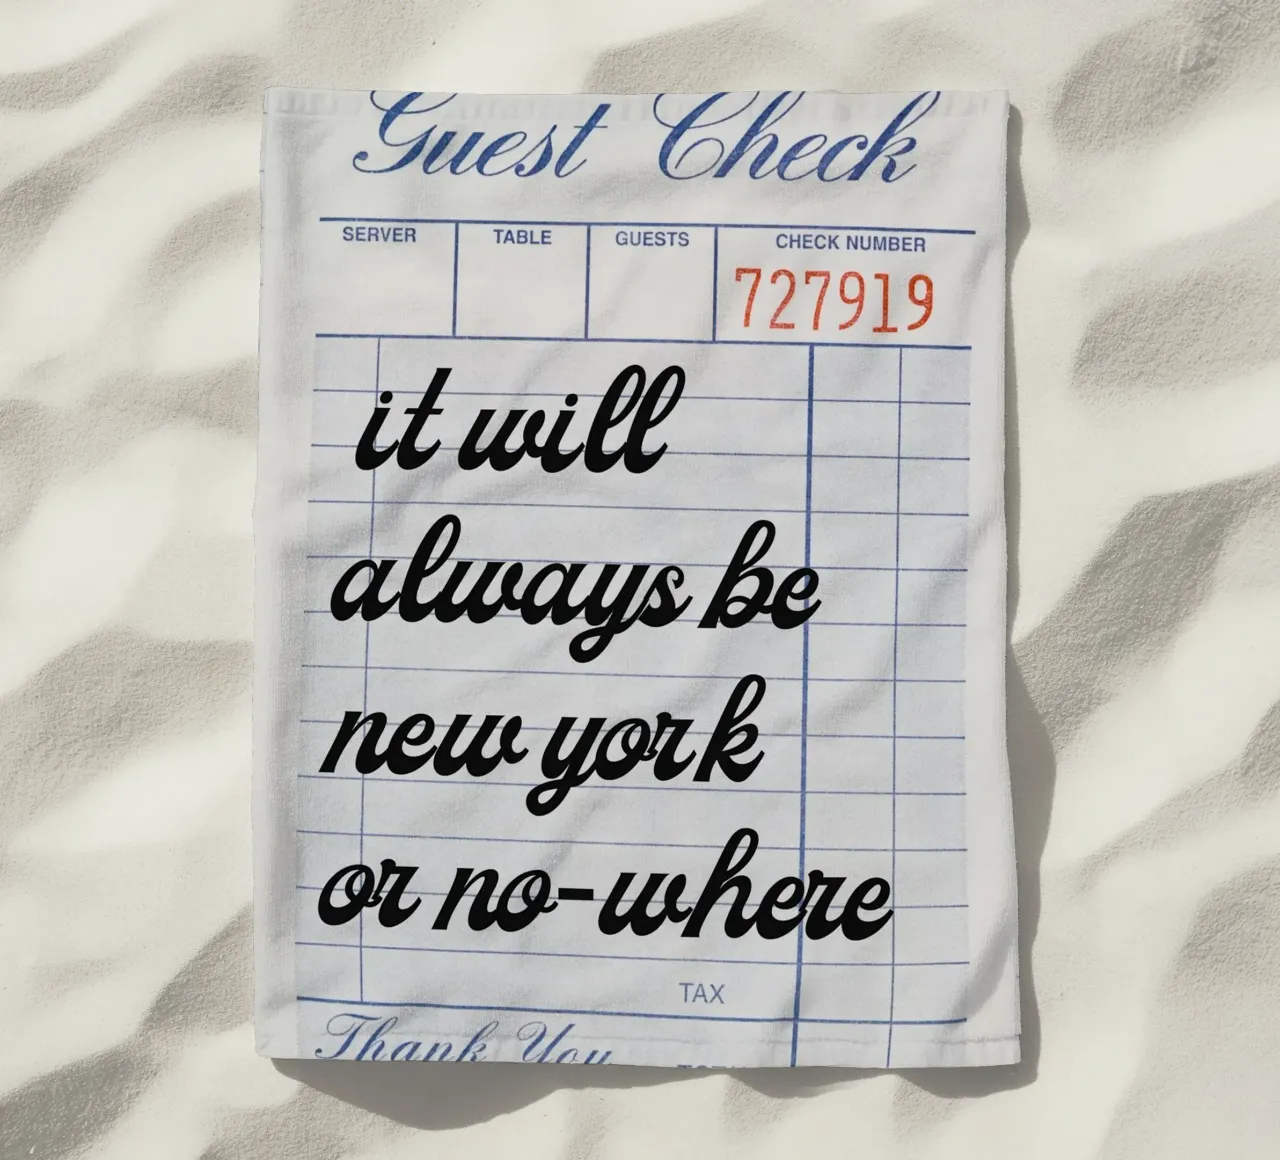 Guest Check
SERVER TABLE GUESTS CHECK NUMBER
727919
it will
always be
new york
or no-where
TAX
Thank You